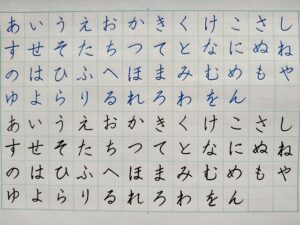 あいうえおかきくけこさし
すせそたちつてとなにぬね
のはひふへほまみむめもや
ゆよらりるれろわをん
あいうえおかきくけこさし
すせそたちつてとなにぬね
のはひふへほまみむめもや
ゆよらりるれろわをん